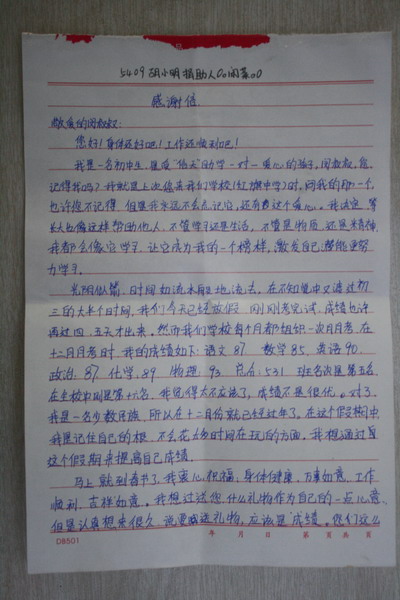 5409 胡小明 捐助人
感谢信
敬爱的闵叔叔:
您好!身体还好吧!工作还顺利吧!
我是一名初中生,是或"1助学一对一爱心的孩子,闵叔叔,您
记得我吗?我就是上次您来我们学校(红旗中学)时,问我的那一个,
也许您不记得,但是我永远不会忘记您,还有您这个爱心。我决定等
长大也像这样帮助他人,不管学习还是生活,不管是物质,还是精神,
我都会像您学习,让您成为我的一个榜样,激发自己,能更努
力学习。
光阴似箭,时间如流水般地流去,在不知觉中又渡过初
三的大半个时间,我们今天已经放假,刚刚考完试,成绩也许
再过四、五天才出来,然而我们学校每个月都组织一次月月考,在
十二月月考时,我的成绩如下:语文87 数学85、英语90、
政治、87 化学、89 物理、93、总分:531 班名次是第五名
在全校中则是第十六名,我觉得太不应该了,成绩不是很优。对了,
我是一名少数民族,所以在十二月份就已经过年了,在这个假期中
我是记住自己的根,不会花太多时间在玩的方面,我想通过
这个假期来提高自己成绩。
马上就到春节了,我衷心祝福,身体健康、万事如意、工作
顺利、吉祥如意。我想过送您什么礼物作为自己的一点心意,
但是认真想来很久,说要成送礼物,应该是"成绩。您们这么
D8501 年 月 日 第 页 共 页